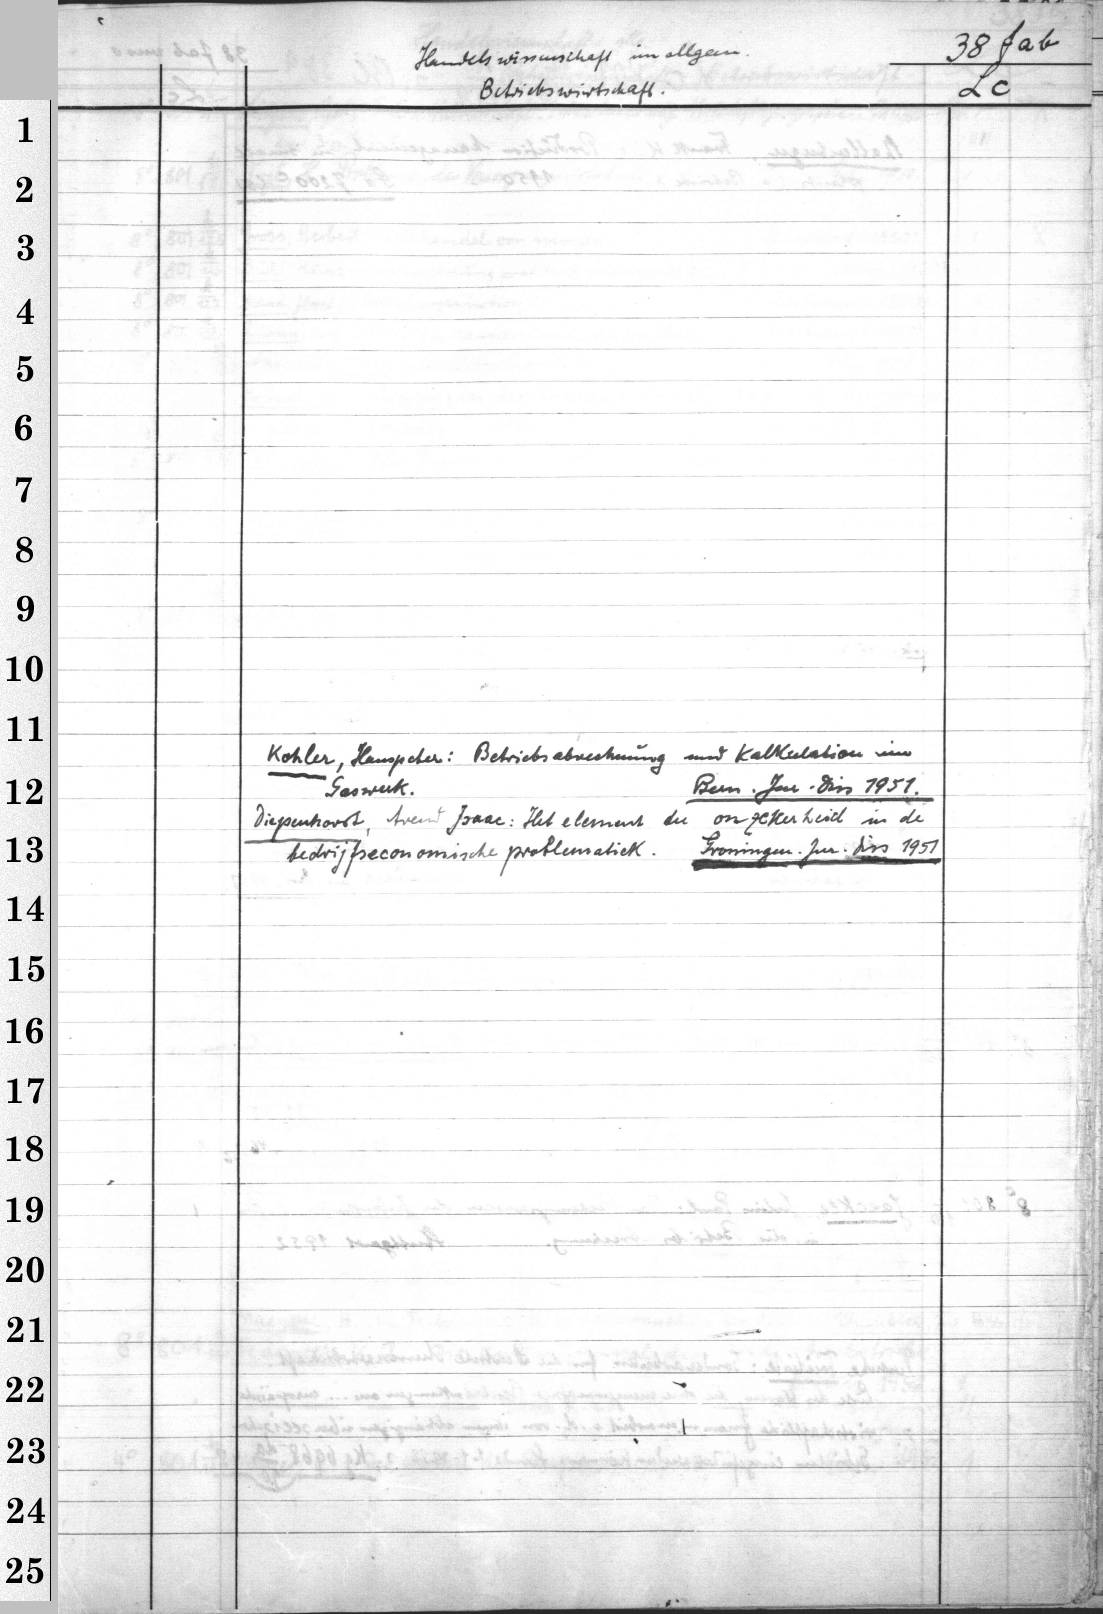 Handelswissenschaft im allgem.
38 fab
Betriebswirtschaft.
Lc
1
2
3
4
5
6
7
8
9
10
11
Kohler, Hanspeter: Betriebsabrechnung und Kalkulation im
12 Gaswerk. Bern. Jur. Diss 1951.
Diepenhorst, Arend Isaac: Het element der onzekerheid in de
13 bedrijfseconomische problematiek. Groningen. Jur. Diss 1951
14
15
16
17
18
19
20
21
22
23
24
25